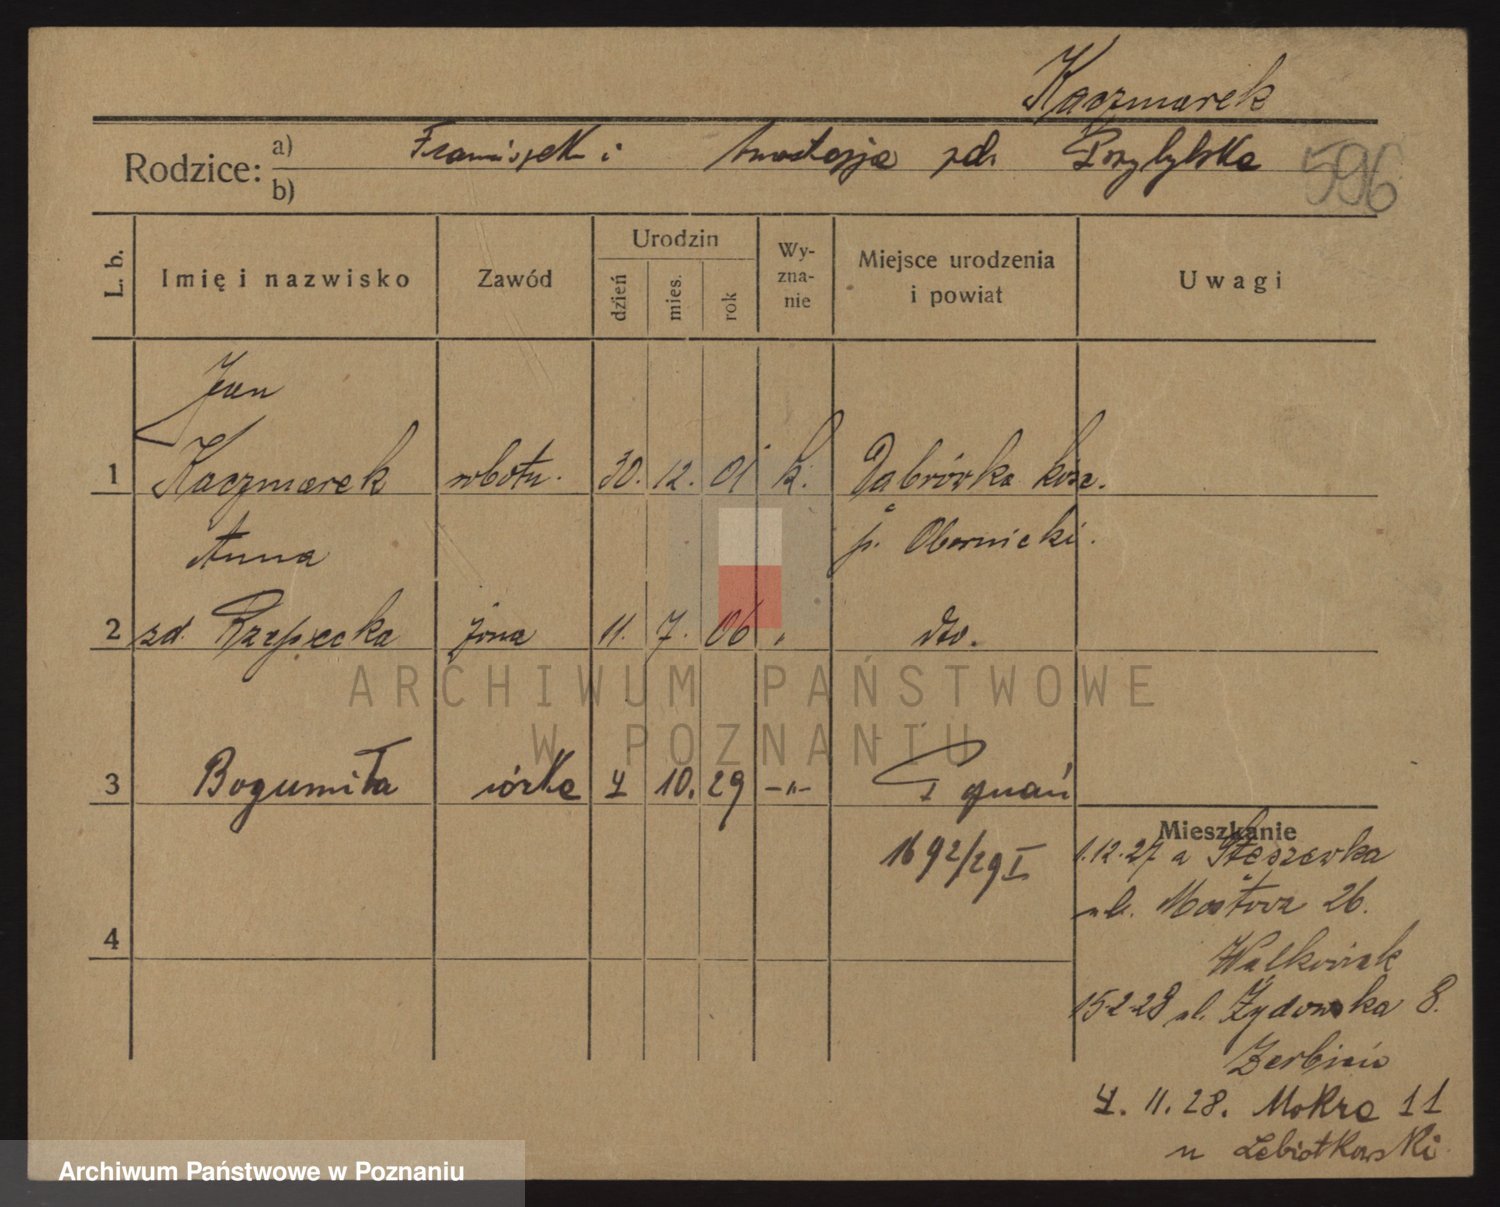 Kaczmarek
Rodzice: a) Franciszek i Anastazja zd. Przybylska
b)
596
L. b. Imię i nazwisko Zawód Urodzin dzień mies. rok Wy-zna-nie Miejsce urodzenia i powiat Uwagi
Jan
1 Kaczmarek robotn. 30. 12. 01 k. Dąbrówka kość.
p. Obornicki.
Anna
2 zd. Rzepecka żona 11. 7. 06 " dto.
3 Bogumiła córka 4 10. 29 -"- Poznań
1692/29 I
4
Mieszkanie
1.12.27 a Stęszewka
ul. Mostowa 26.
Walkowiak
15-2-28 ul. Żydowska 8.
4. 11. 28. Mokra 11
u Lebiotkowski
ARCHIWUM PAŃSTWOWE
W POZNANIU
Archiwum Państwowe w Poznaniu